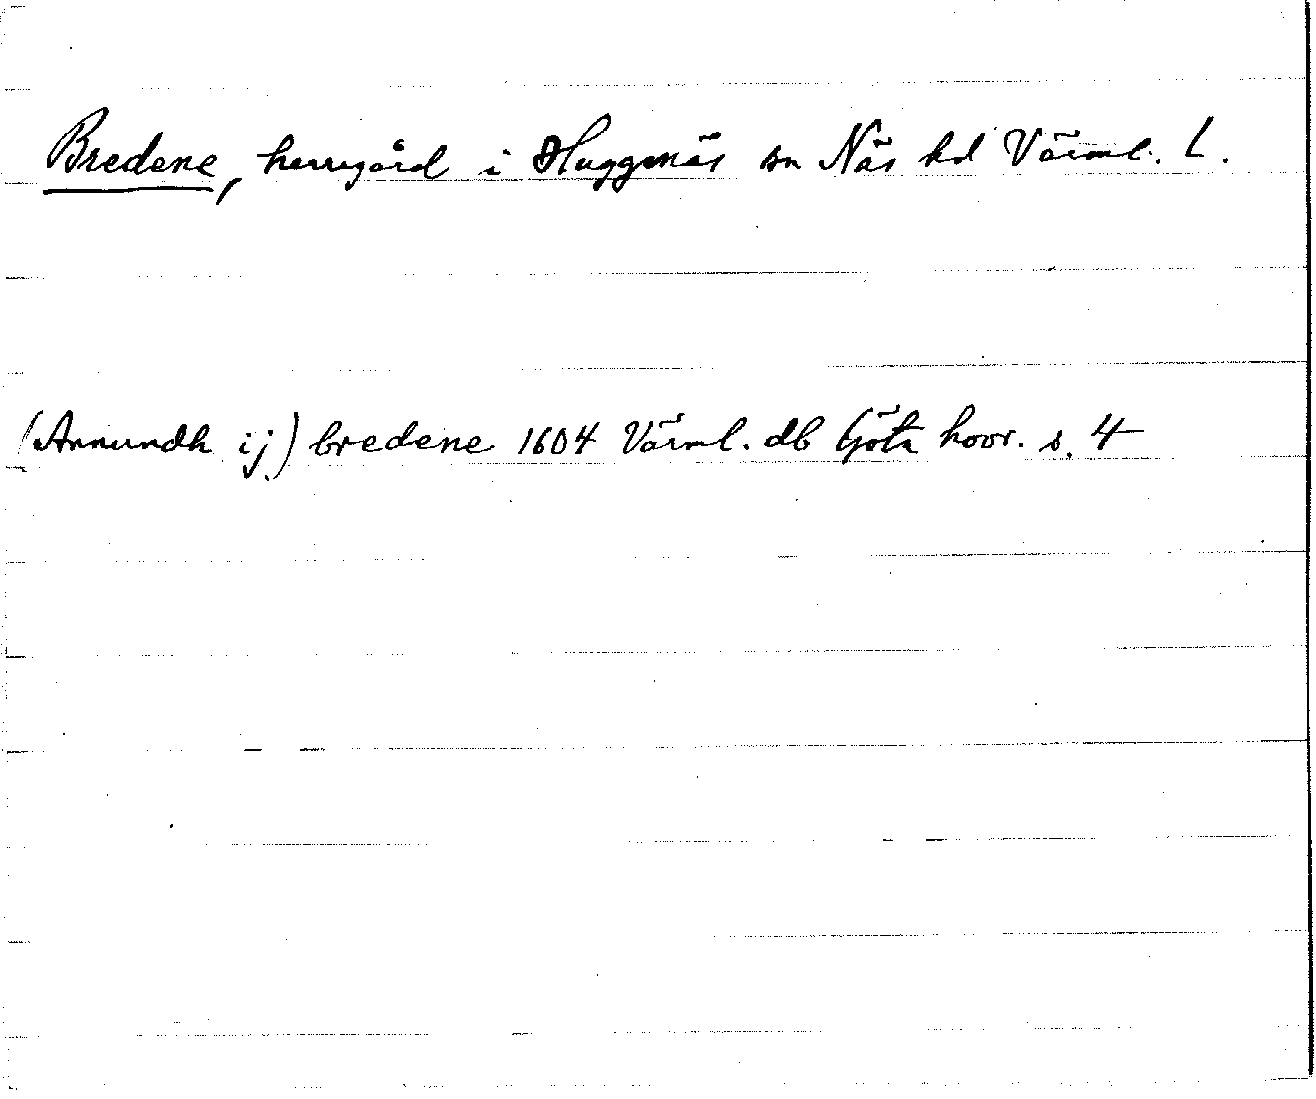 Bredene, herrgård i Huggenäs sn Näs hd Värml. L.
(Anundh ij) bredene 1604 Värml. db Göta hovr. s. 4